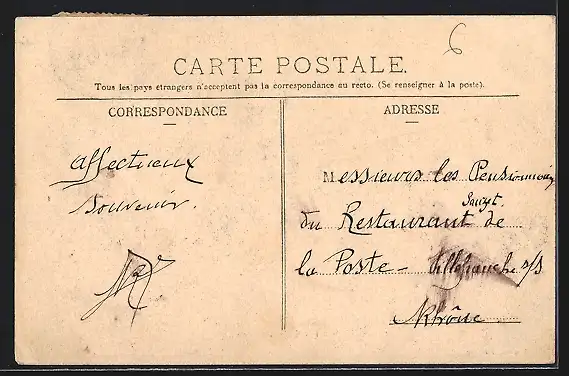 6
CARTE POSTALE.
Tous les pays étrangers n'acceptent pas la correspondance au recto. (Se renseigner à la poste).
CORRESPONDANCE
Affectueux
Souvenir.
ADRESSE
Messieurs les Pensionnaires
du Restaurant de
la Poste - Villefranche s/S
Rhône